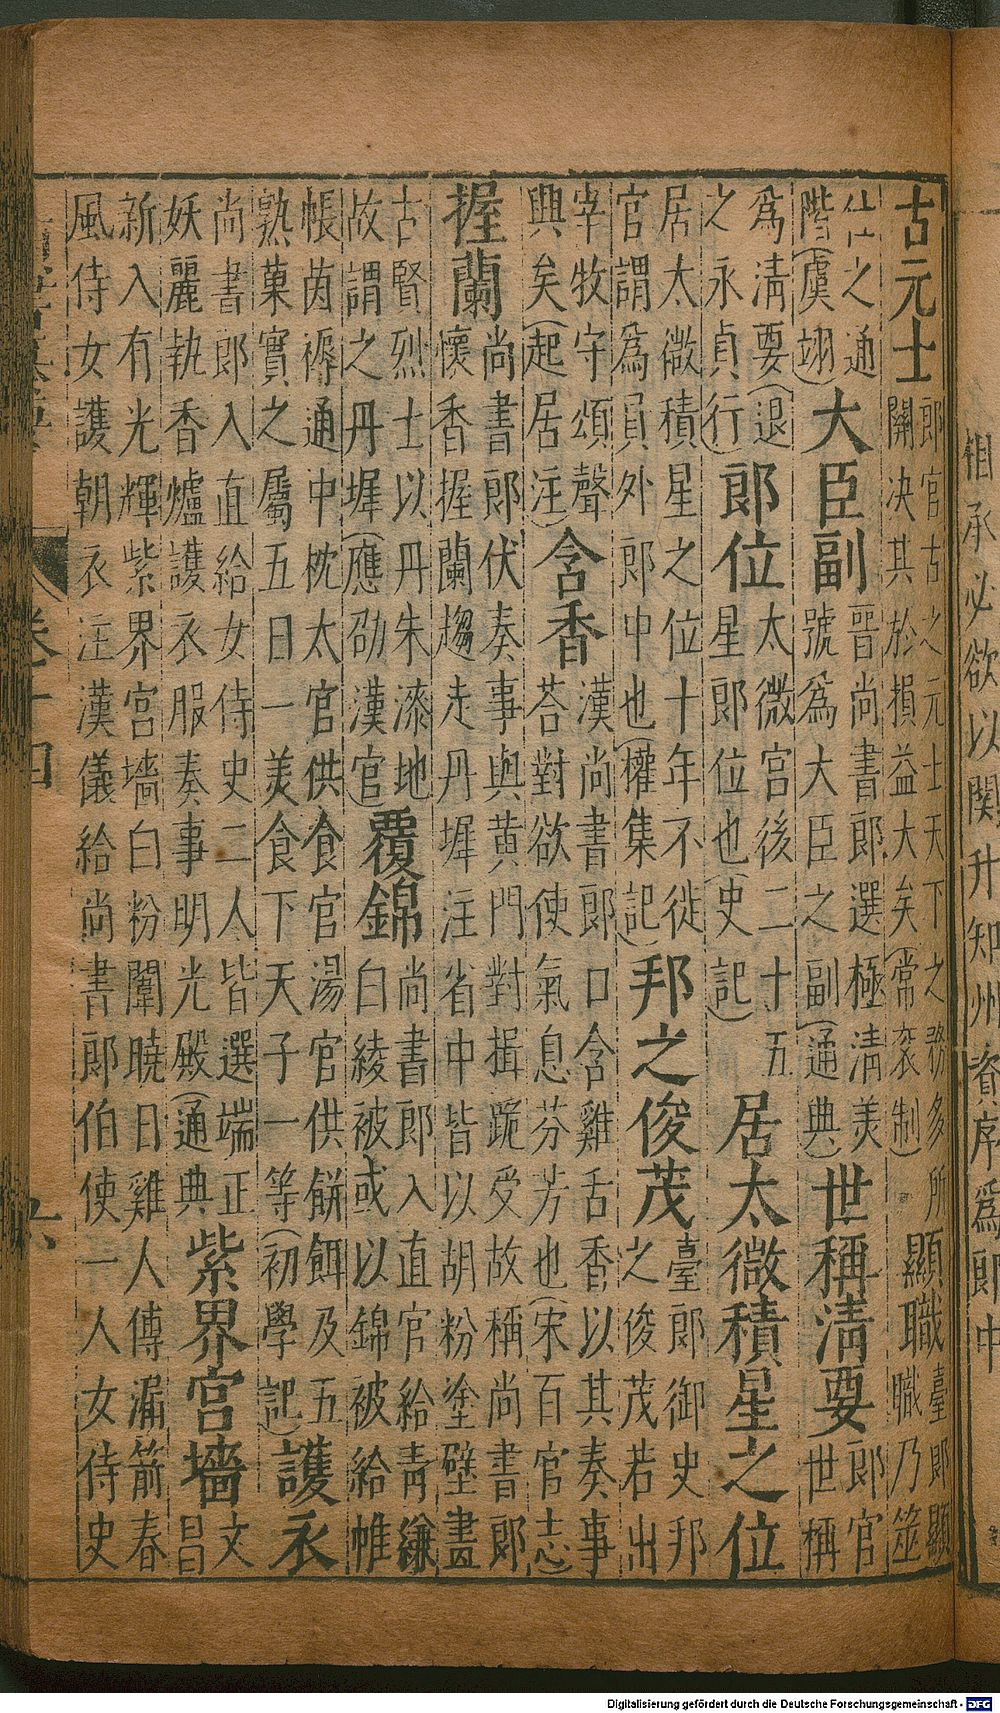 相承必欲以關升知州資序爲郎中
古元士郎官古之元士天下之務多所關决其於損益大矣(常衮制)顯職臺郎顯職乃筮
仕之通階(虞翊)大臣副晉尚書郎選極清美號爲大臣之副(通典)世稱清要郎官世稱
爲清要(退之永貞行)郎位太微宮後二十五星郎位也(史記)居太微積星之位
居太微積星之位十年不徙官謂爲員外郎中也(權集記)邦之俊茂臺郎御史邦之俊茂若出
宰牧守頌聲興矣(起居注)含香漢尚書郎口含雞舌香以其奏事荅對欲使氣息芬芳也(宋百官志)
握蘭尚書郎伏奏事與黄門對揖跪受故稱尚書郎懷香握蘭趨走丹墀注省中皆以胡粉塗壁畫
古賢烈士以丹朱漆地故謂之丹墀(應劭漢官)覆錦尚書郎入直官給青縑白綾被或以錦被給帷
帳茵褥通中枕太官供食官湯官供餅餌及五熟菓實之屬五日一美食下天子一等(初學記)護衣
尚書郎入直給女侍史二人皆選端正妖麗執香爐護衣服奏事明光殿(通典)紫界宮墻文昌
新入有光輝紫界宮墻白粉闈曉日雞人傳漏箭春風侍女護朝衣注漢儀給尚書郎伯使一人女侍史
卷十四
Digitalisierung gefördert durch die Deutsche Forschungsgemeinschaft - DFG